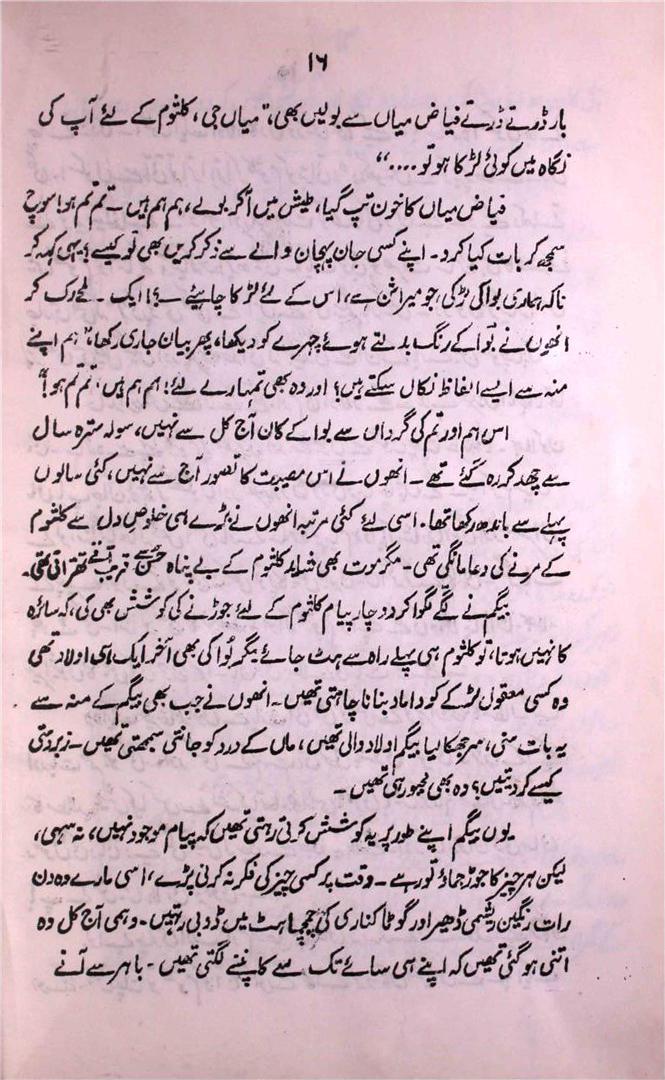 ۱۶
بار ڈرتے ڈرتے فیاض میاں سے بولیں بھی، "میاں جی، کلثوم کے لئے آپ کی
نگاہ میں کوئی لڑکا ہو تو...."
فیاض میاں کا خون تپ گیا، طیش میں آکر بولے، ہم ہم ہیں۔ تم تم ہو! سوچ
سمجھ کر بات کیا کرو۔ اپنے کسی جان پہچان والے سے ذکر کریں بھی تو کیسے؟ یہی کہہ کر
نا کہ ہماری بوا کی لڑکی، جو میراثن ہے، اس کے لئے لڑکا چاہیئے ۔؟! ایک۔ لمحے رک کر
انھوں نے بوا کے رنگ بدلتے ہوئے چہرے کو دیکھا، پھر بیان جاری رکھا، "ہم اپنے
منہ سے ایسے الفاظ نکال سکتے ہیں؟ اور وہ بھی تمہارے لئے! ہم ہم ہیں، تم تم ہو!"
اس ہم اور تم کی گرداں سے بوا کے کان آج کل سے نہیں، سولہ سترہ سال
سے چھد کر رہ گئے تھے۔ انھوں نے اس مصیبت کا تصور آج سے نہیں، کئی سالوں
پہلے سے باندھ رکھا تھا۔ اسی لئے کئی مرتبہ انھوں نے بڑے ہی خلوصِ دل سے کلثوم
کے مرنے کی دعا مانگی تھی۔ مگر موت بھی شاید کلثوم کے بے پناہ حسن سے قریب آتے تھراتی تھی۔
بیگم نے لگے لگوا کر دو چار پیام کلثوم کے لئے جوڑنے کی کوشش بھی کی، کہ سائرہ
کا نہیں ہوتا، تو کلثوم ہی پہلے راہ سے ہٹ جائے مگر بوا کی بھی آخر ایک ہی اولاد تھی
وہ کسی معقول لڑکے کو داماد بنانا چاہتی تھیں۔ انھوں نے جب بھی بیگم کے منہ سے
یہ بات سنی، سر جھکا لیا بیگم اولاد والی تھیں، ماں کے درد کو جانتی سمجھتی تھیں۔ زبردستی
کیسے کر دیتیں؟ وہ بھی مجبور ہی تھیں۔
یوں بیگم اپنے طور پر یہ کوشش کرتی رہتی تھیں کہ پیام موجود نہیں، نہ سہی،
لیکن ہر چیز کا جوڑ جماؤ تو رہے۔ وقت پر کسی چیز کی فکر نہ کرنی پڑے، اسی مارے وہ دن
رات رنگین ریشمی ڈھیر اور گوٹا کناری کی چمچماہٹ میں ڈوبی رہتیں۔ وہمی آج کل وہ
اتنی ہو گئی تھیں کہ اپنے ہی سائے تک سے کانپنے لگتی تھیں۔ باہر سے آنے